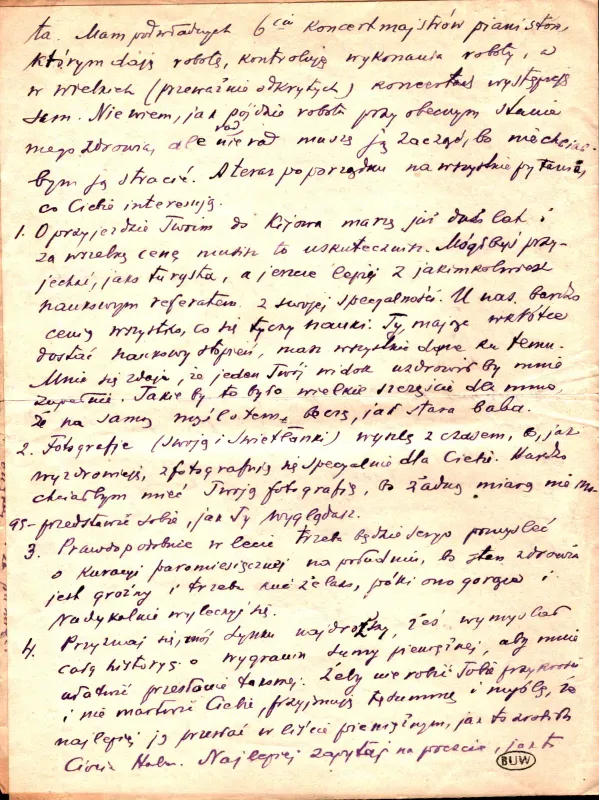 ta. Mam podwładnych 6ciu koncertmajstrów pianistów,
którym dają robotę, kontroluję wykonanie roboty, a
w wielkich (przeważnie odkrytych) koncertach występuję
sam. Nie wiem, jak pójdzie robota przy obecnym stanie
mego zdrowia, ale rad nie rad muszę ją zacząć, bo nie chciał-
bym ją stracić. A teraz po porządku na wszystkie pytania,
co Ciebie interesują.
1. O przyjeździe Twoim do Kijowa marzę już dużo lat i
za wszelką cenę musisz to uskutecznić. Mógłbyś przy-
jechać, jako turysta, a jeszcze lepiej z jakimkolwiek
naukowym referatem z swojej specjalności. U nas bardzo
cenią wszystko, co się tyczy nauki. Ty, mając wkrótce
dostać naukowy stopień, masz wszystkie dane ku temu.
Mnie się zdaje, że jeden Twój widok uzdrowiłby mnie
zupełnie. Takie by to było wielkie szczęście dla mnie,
że na samą myśl o tem, beczę, jak stara baba.
2. Fotografje (swoją i Swietłanki) wyszlę z czasem, bo, jak
wyzdrowieję, sfotografuję się specjalnie dla Ciebie. Bardzo
chciałbym mieć Twoją fotografię, bo żadną miarą nie mo-
gę przedstawić sobie, jak Ty wyglądasz.
3. Prawdopodobnie w lecie trzeba będzie seryo pomyśleć
o kuracyi paromiesięcznej na południu, bo stan zdrowia
jest groźny i trzeba kuć żelazo, póki ono gorące i
radykalnie wyleczyć się.
4. Przyznaj się, mój synku najdroższy, żeś wymyślał
całą historyę o wygraniu sumy pieniężnej, aby mnie
ułatwić przesłanie takowej. Żeby nie robić Tobie przykrości
i nie martwić Ciebie, przyjmuję tę summę i myślę, że
najlepiej ją przesłać w liście pieniężnym, jak to zrobiła
Ciocia Hala. Najlepiej zapytaj na poczcie, jak to
BUW